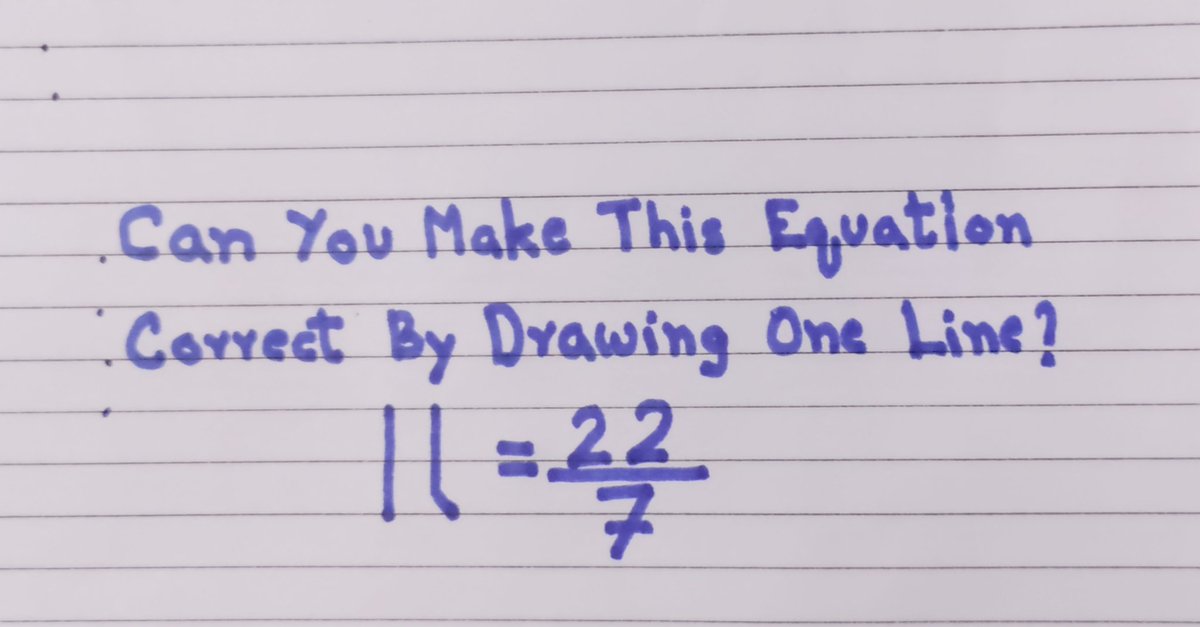 Can You Make This Equation
Correct By Drawing One Line?
|| = 22
7